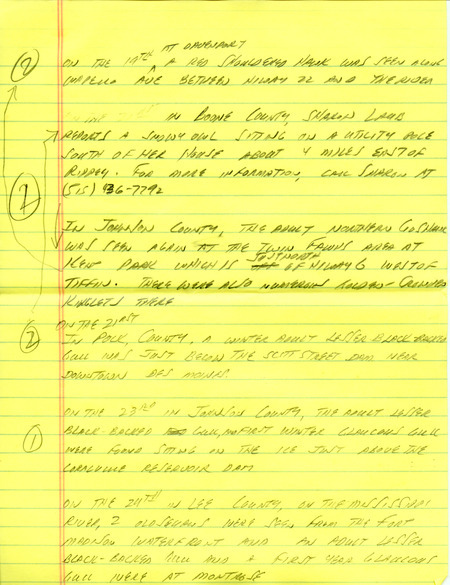 AT DAVENPORT
② ON THE 19TH ^ A RED SHOULDERED HAWK WAS SEEN ALONG
AVE BETWEEN HIWAY 22 AND THE RIVER
IN BOONE COUNTY, SHARON LAMB
REPORTS A SNOWY OWL SITING ON A UTILITY POLE
SOUTH OF HER HOUSE ABOUT 4 MILES EAST OF
RIPPEY. FOR MORE INFORMATION, CALL SHARON AT
1 (515) 36-7792
IN JOHNSON COUNTY, THE ADULT NORTHERN GOSHAWK
WAS SEEN AGAIN AT THE TWIN FAWNS AREA AT
JUST NORTH
KENT PARK WHICH IS OF HIWAY 6 WEST OF
TIFFIN. THERE WERE ALSO NUMEROUS GOLDEN-CROWNED
KINGLETS THERE
ON THE 21ST
② IN POLK, COUNTY. A WINTER ADULT LESSER BLACK-BACKED
GULL WAS JUST BELOW THE SCOTT STREET DAM NEAR
DOWNTOWN DES MOINES.
ON THE 23RD IN JOHNSON COUNTY, THE ADULT LESSER
① BLACK-BACKED GULL, FIRST WINTER GLAUCOUS GULL
WERE FOUND SITING ON THE ICE JUST ABOVE THE
CORALVILLE RESERVOIR DAM
ON THE 24TH IN LEE COUNTY, ON THE MISSISSIPPI
RIVER, 2 OLDSQUAWS WERE SEEN FROM THE FORT
MADISON WATERFRONT AND AN ADULT LESSER
BLACK-BACKED GULL AND 2 FIRST YEAR GLAUCOUS
GULL WERE AT MONTROSE